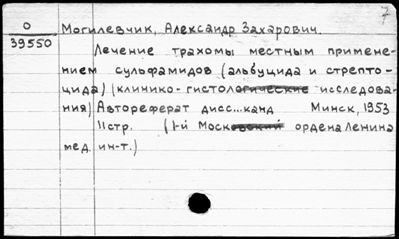 7
О Могилевчик, Александр Захарович.
39550
Лечение трахомы местным примене-
нием сульфамидов (альбуцида и стрепто-
цида) (клинико-гистологические исследова-
ния) Автореферат дисс...канд Минск, 1953
11стр. (1-й Московский ордена Ленина
мед. ин-т.)